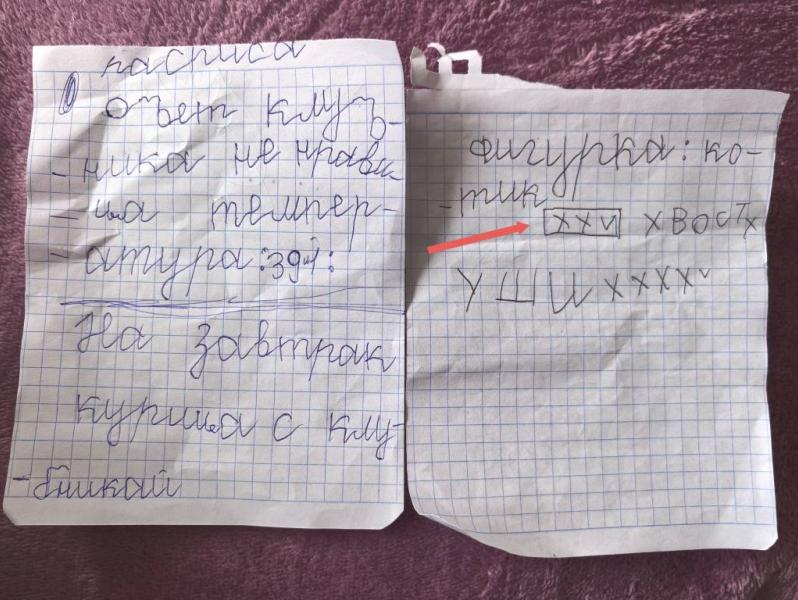 написа
Ответ клуб-
-ника не нрави
-ца темпер-
-атура:39ч:
На завтрак
курица с клу-
-бникай
Фигурка: ко-
-тик
XXV ХВОСТХ
УШИ XXXXV